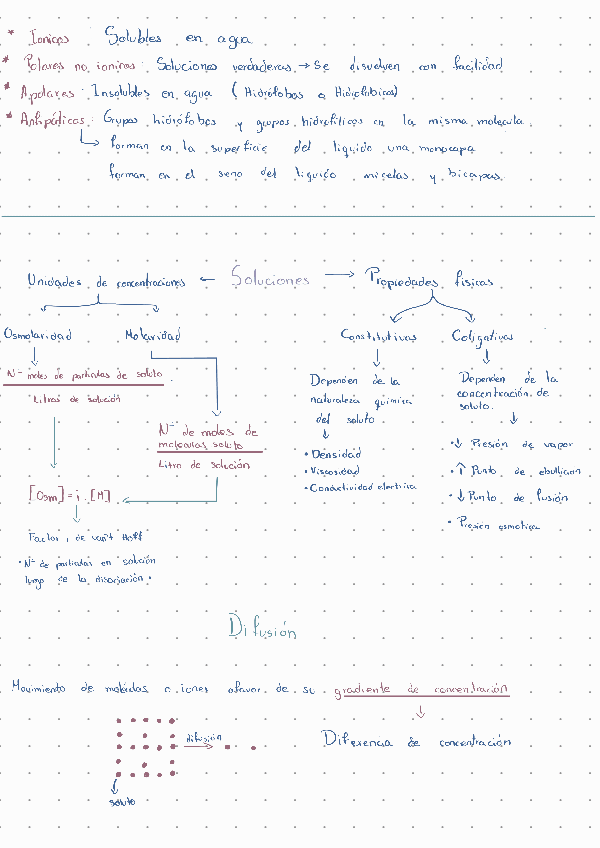 * Ionicos : Solubles en agua
* Polares no ionicos : Soluciones verdaderas → Se disuelven con facilidad
* Apolares : Insolubles en agua ( Hidrófobos o Hidrofóbicos)
* Anfipáticos : Grupos hidrófobos y grupos hidrofílicos en la misma molecula
forman en la superficie del liquido una monocapa
forman en el seno del liquido micelas y bicapas.
Unidades de concentraciones ← Soluciones → Propiedades fisicas
Osmolaridad Molaridad Constitutivas Coligativas
Nº moles de particulas de soluto
Litros de solución
Dependen de la naturaleza quimica del soluto
Dependen de la concentración de soluto.
Nº de moles de moleculas soluto
Litro de solución
• Densidad
• Viscosidad
• Conductividad electrica
• ↓ Presión de vapor
• ↑ Punto de ebullicion
• ↓ Punto de fusión
• Presion osmotica
[Osm] = i . [M]
Factor i de van't Hoff
• Nº de particulas en solución
luego de la disociación •
Difusión
Movimiento de moleculas o iones a favor de su gradiente de concentración
difusión
Diferencia de concentración
soluto